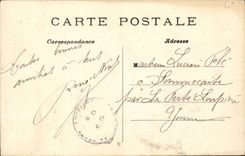 CARTE POSTALE
Correspondance
Adresse
Toutes bonnes
amitiés à tous
Monsieur Lucien Félé
à Sommecaise
par La Ferté Loupière
Yonne